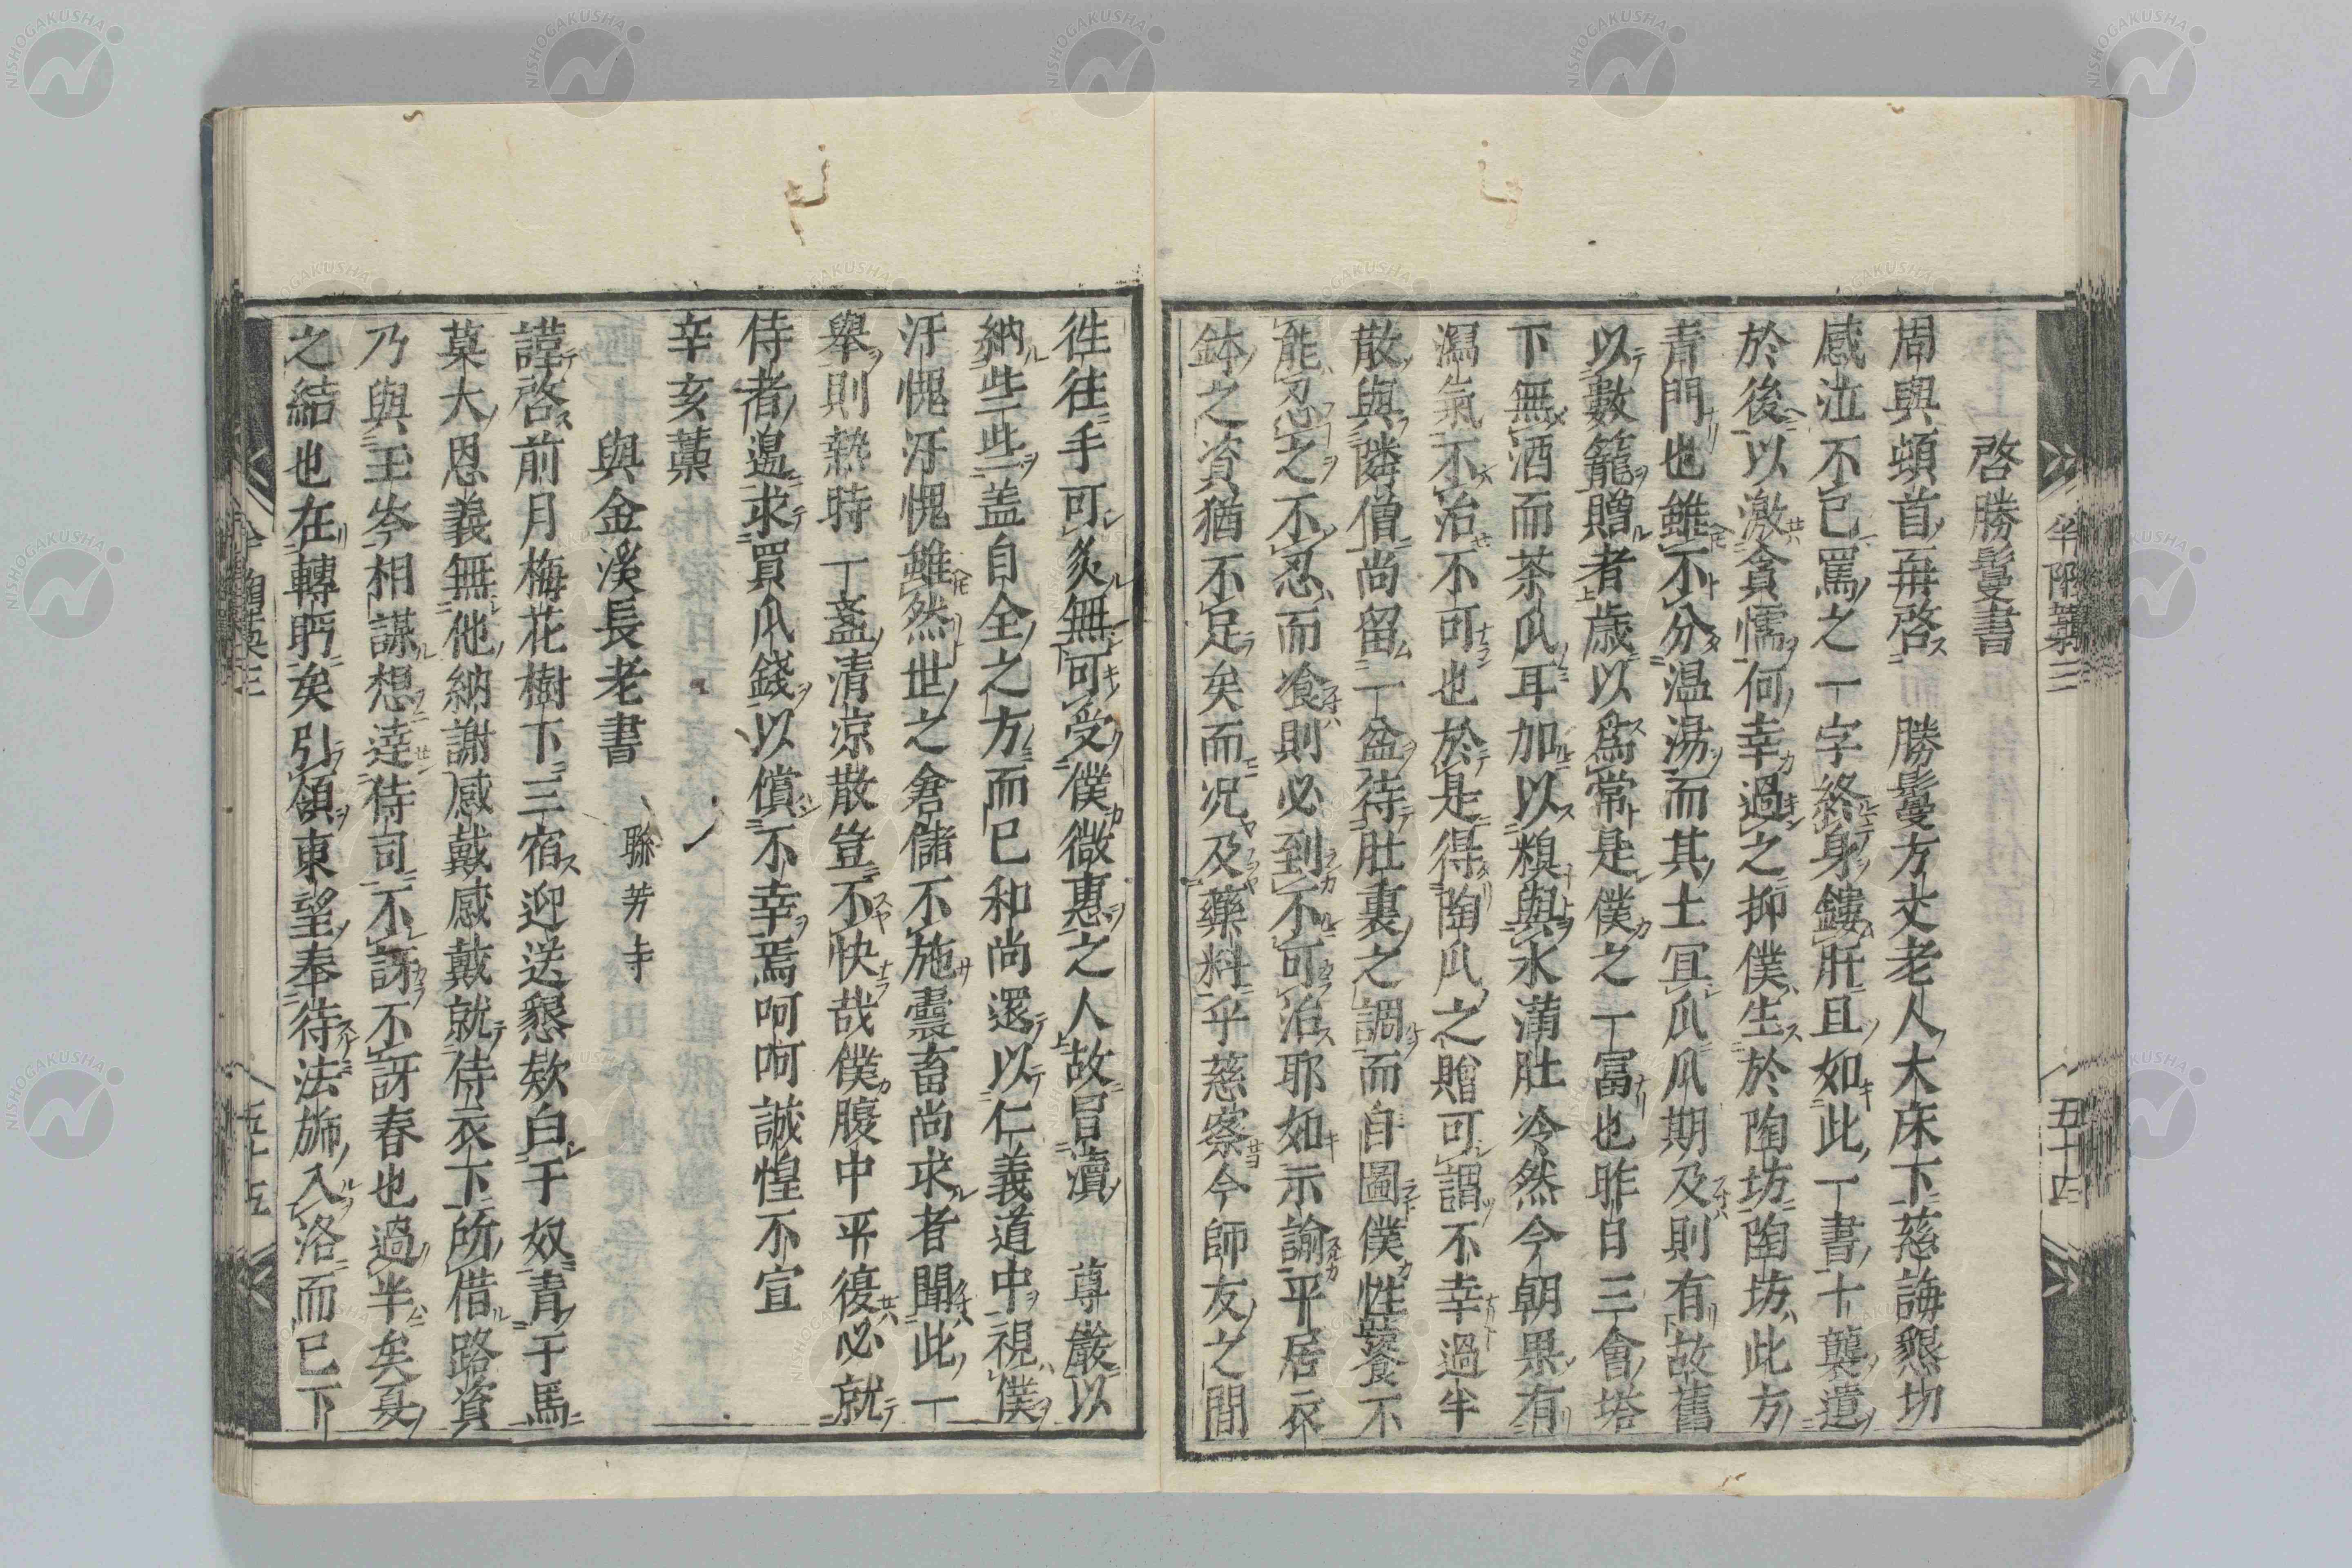 半陶藁三
五十四
啓勝鬘書
周與頓首再啓勝鬘方丈老人大床下慈誨懇切
感泣不已罵之一字終身鏤肝且如此一書十襲遺
於後以激貪懦何幸過之抑僕生於陶坊陶坊此方
青門也雖不分温湯而其土宜瓜瓜期及則有故舊
以數籠贈者歳以爲常是僕之一富也昨日三會塔
下無酒而茶瓜耳加以糗與水滿肚冷然今朝果有
瀉氣不治不可也於是得陶瓜之贈可謂不幸過半
散與隣僧尚留一盆待肚裏之調而自圖僕性饕不
能忍之不忍而飡則必到不可治耶如示諭平居衣
鉢之資猶不足矣而况及藥料乎慈察今師友之間
徃往手可炙無可受僕微惠之人故冒瀆尊嚴以
納些些盖自全之方而已和尚還以仁義道中視僕
汙愧汙愧雖然世之倉儲不施靈畜尚求者聞此一
舉則熱時一盞清凉散豈不快哉僕腹中平復必就
侍者邉求買瓜錢以償不幸焉呵呵誠惶不宣
辛亥藁
與金溪長老書 聯芳寺
謹啓前月梅花樹下三宿迎送懇欵白于奴青于馬
莫大恩義無他納謝感戴感戴就侍衣下所借路資
乃與王岑相謀想逹侍司不訝不訝春也過半矣夏
之結也在轉眄矣引領東望奉待法斾入洛而已下
半陶藁三
五十五